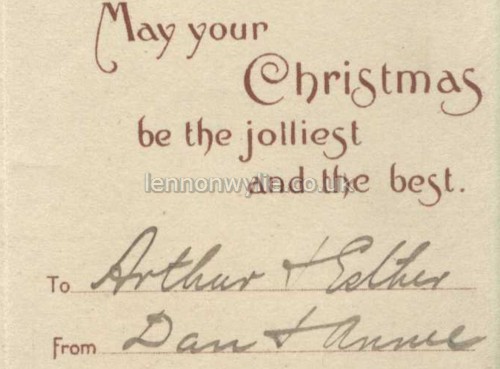 May your
Christmas
be the jolliest
and the best.
lennonwylie.co.uk
To Arthur + Esther
From Dan + Annie